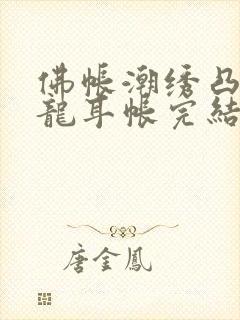 佛帐潮绣凸
龍耳帐完結
唐金鳳